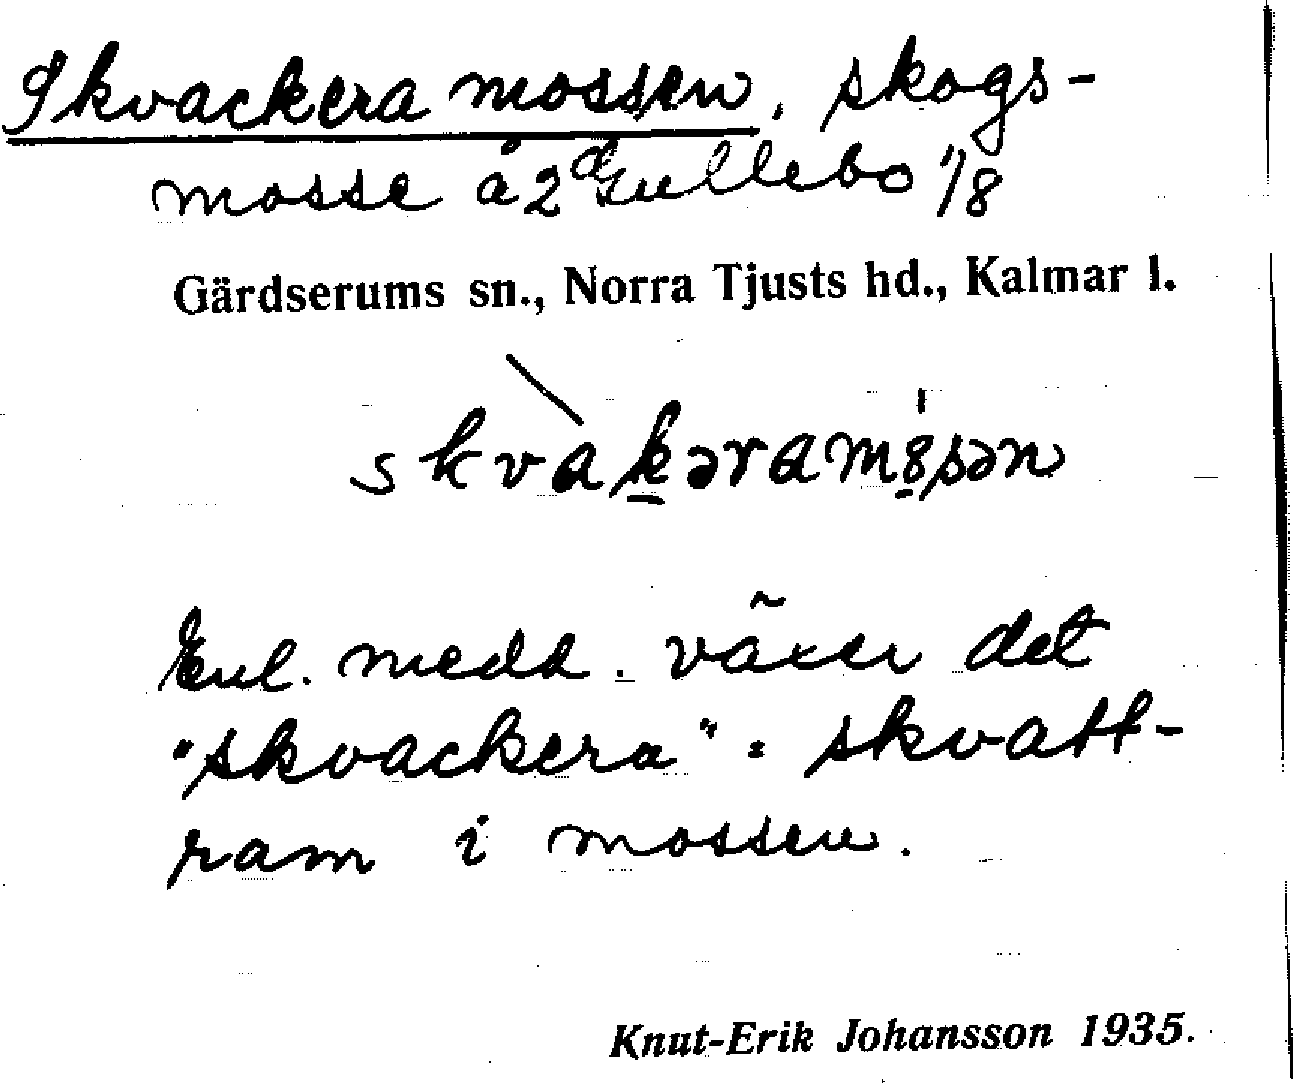 Skvackera mossen, skogs-
mosse å 2 d Gullebo 1/8
Gärdserums sn., Norra Tjusts hd., Kalmar l.
skvakəramȯsən
Enl. medd. växer det
"skvackera" = skvatt-
ram i mossen.
Knut-Erik Johansson 1935.